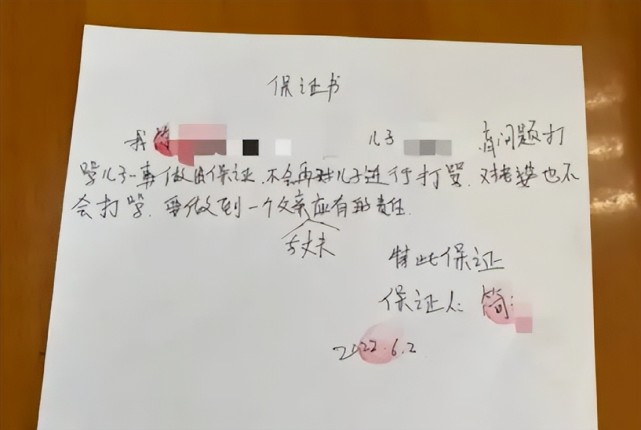 保证书
我简 儿子 有问题打
骂儿子一事做出保证.不会再对儿子进行打骂.对老婆也不
会打骂.要做到一个父亲与丈夫应有的责任.
特此保证
保证人: 简
2022.6.2